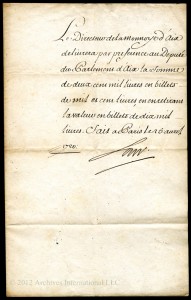 Le Directeur de la monnoye d'Aix
delivrera par preference au Deputé
du Parlement d'Aix la somme
de deux cent mil livres en billets
de mil et cent livres en retirant
la valeur en billets de dix mil
livres. Fait a Paris le 16 aoust
1720.
Law
© 2012 Archives International LLC